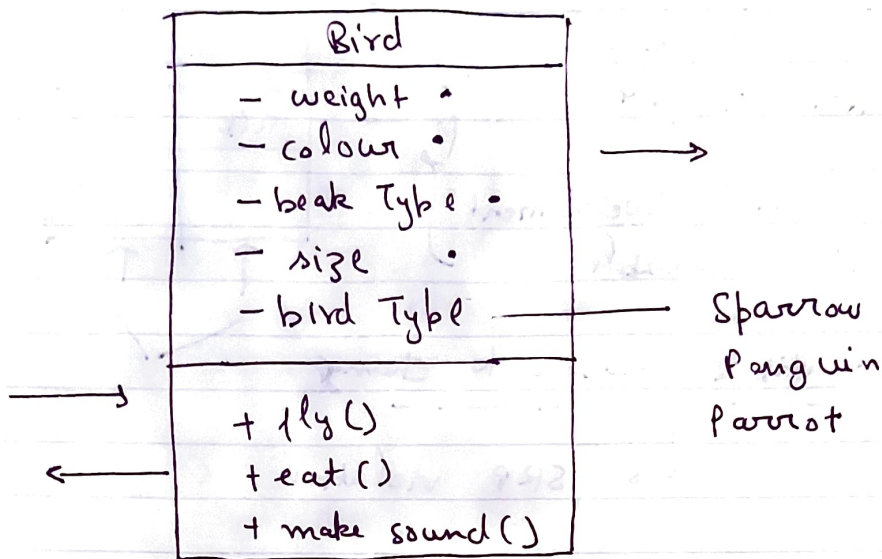 Bird
- weight •
- colour •
- beak Type •
- size •
- bird Type
Sparrow
Penguin
Parrot
+ fly()
+ eat()
+ make sound()